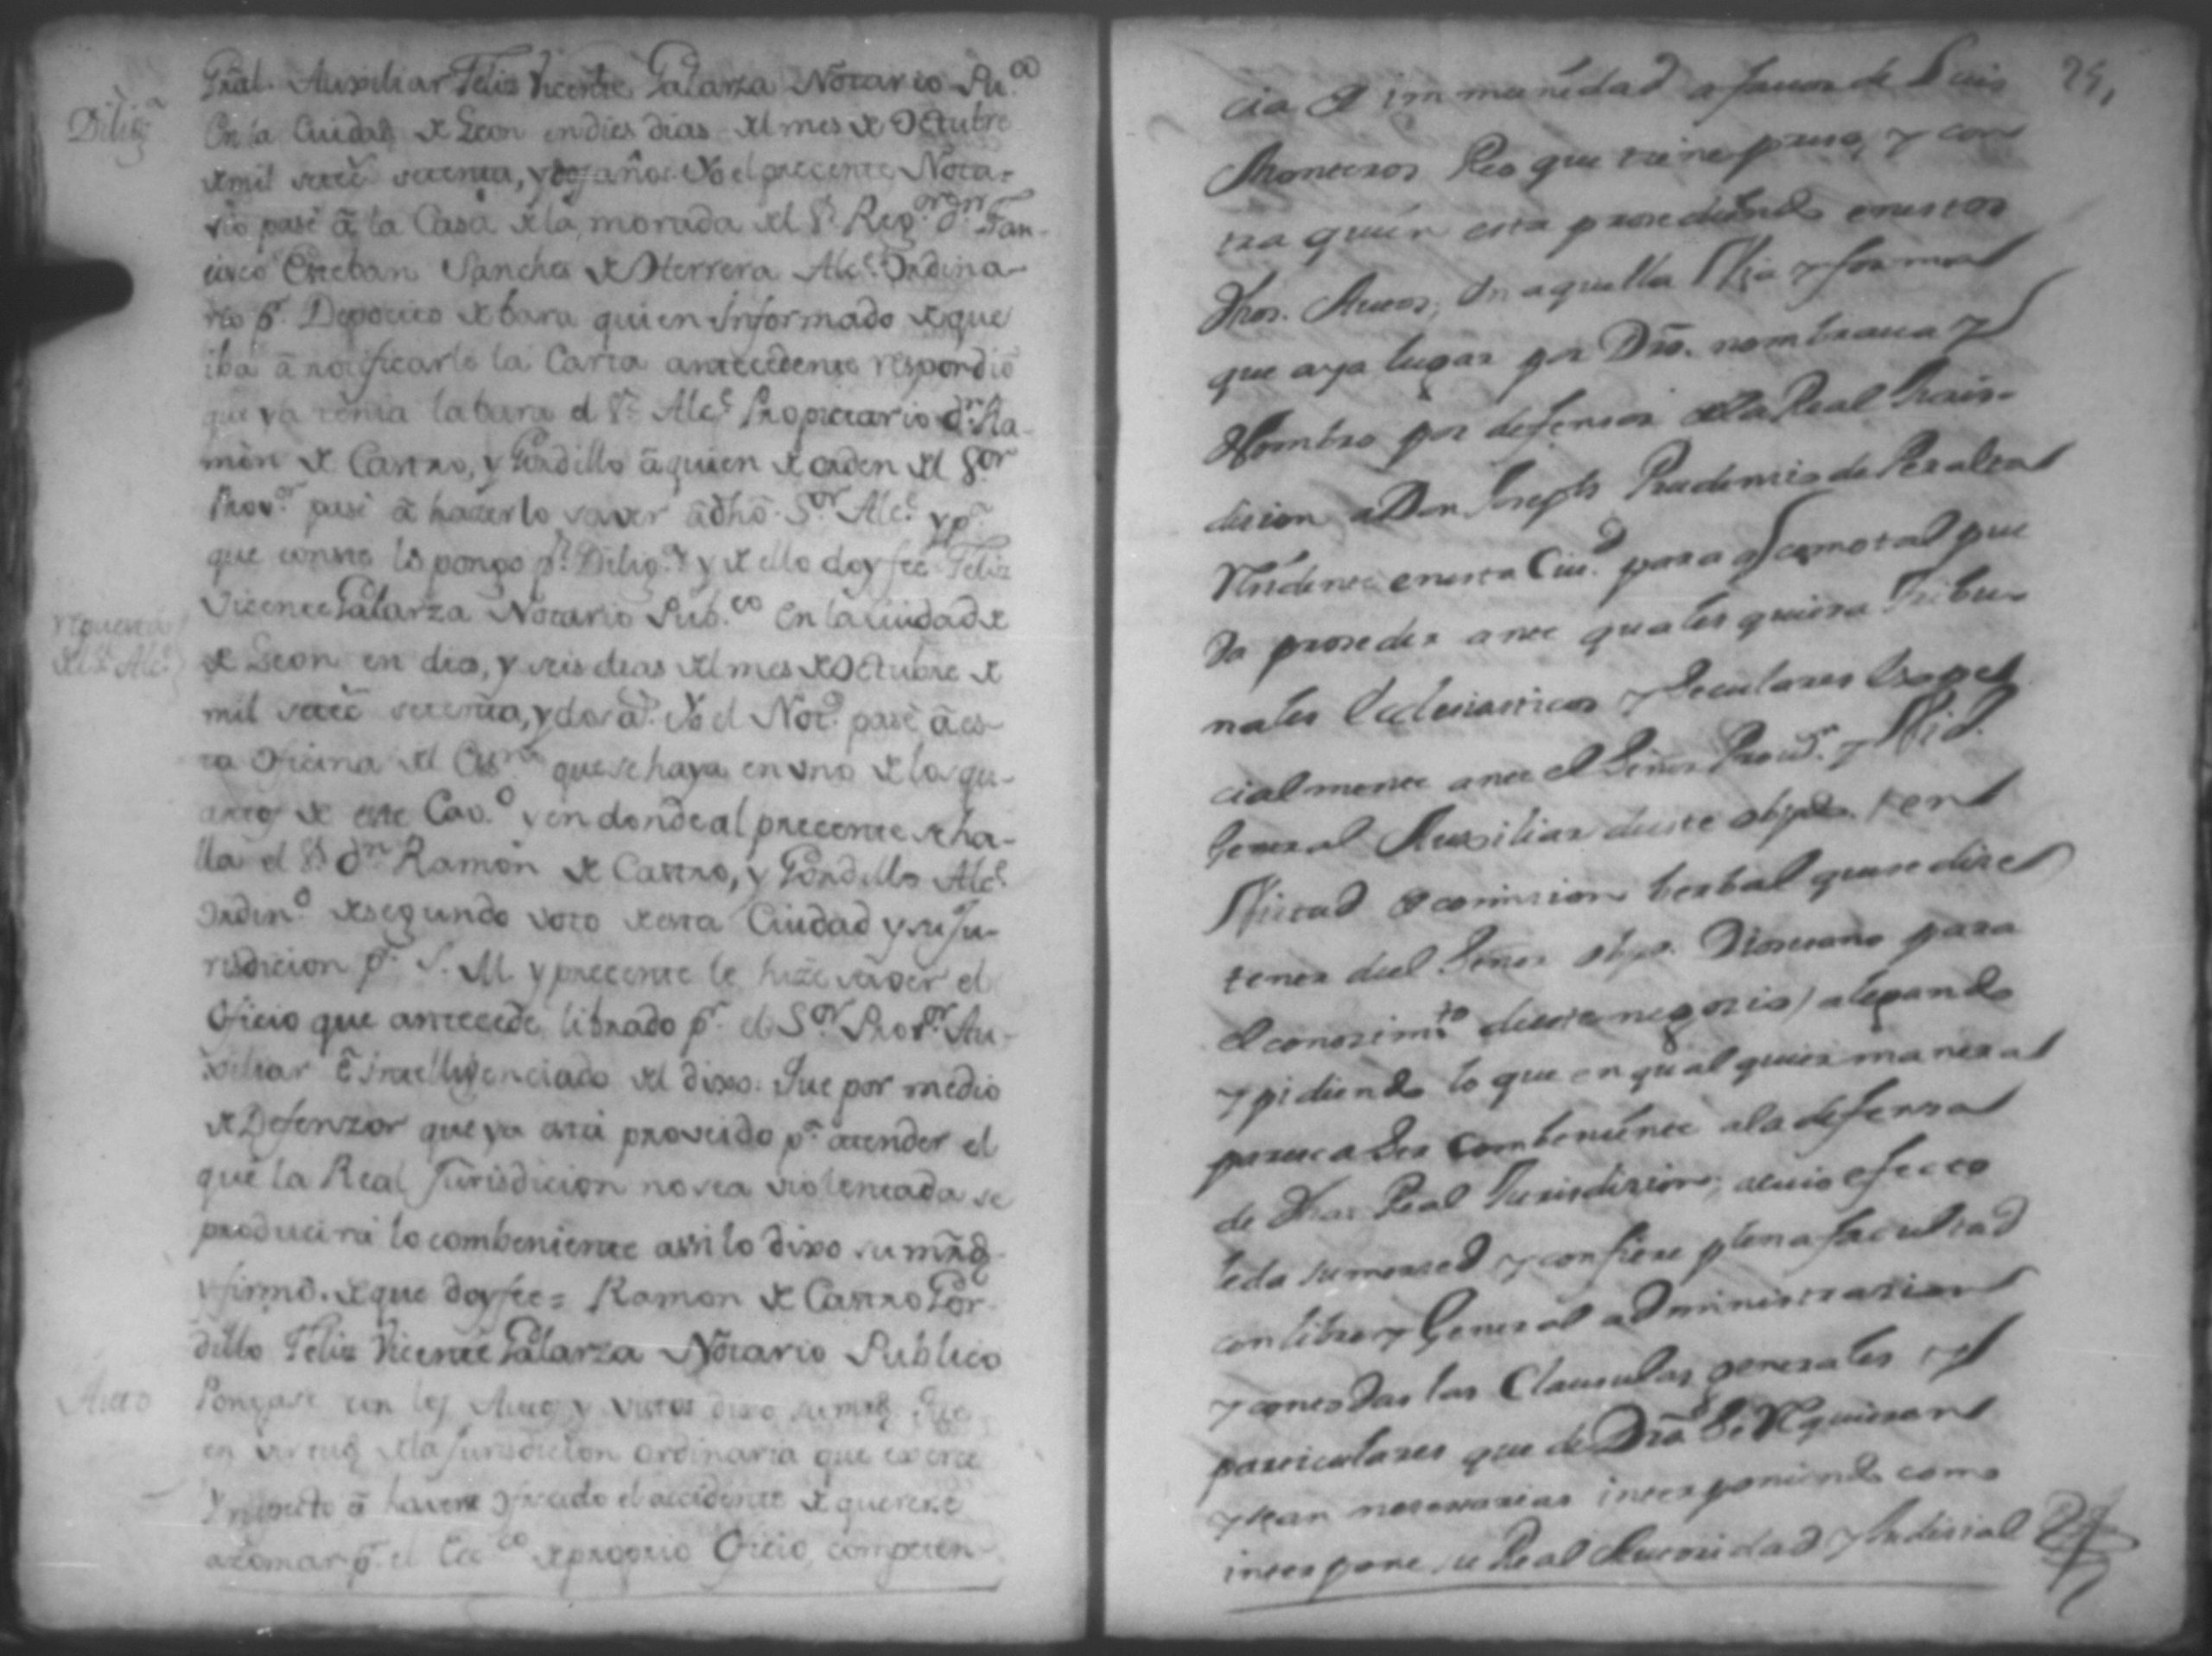 Gral. Auxiliar Feliz Vicente Palarza Notario Pu.co
Dilig.a
En la Ciudad de Leon en dies dias del mes de Octubre
de mil setec.s setenta, y dos años. Yo el precente Nota-
rio pasé á la Casa de la morada del S.r Reg.or d.n Fran-
cisco Esteban Sanches de Herrera Alc.e Ordina-
rio p.r Deposito de bara quien Informado de que
iba á notificarle la Carta antecedente respondió
que ya tenia la bara el S.r Alc.e Propietario d.n Ra-
món de Castro, y Gordillo á quien de orden del S.or
Prov.or pasé á hazerlo saver á dho. S.or Alc.e y p.a
que conste lo pongo p.r Dilig.a y de ello doy feé Feliz
Vicente Palarza Notario Pub.co En la Ciudad de
Repuesta
del S.r Alc.e
de Leon en dies, y seis dias del mes de Octubre de
mil setec.s setenta, y dos a.s Yo el Not.o pasé á es-
ta Oficina del Es.no que se haya en uno de los qu-
artos de este Cav.o y en donde al precente se ha-
lla el S.r d.n Ramón de Castro, y Gordillo Alc.e
Ordin.o de segundo voto de esta Ciudad y su Ju-
risdicion p.r S. M. y precente le hize saver el
Oficio que antecede librado p.r el S.or Prov.or Au-
xiliar é Inteligenciado del dixo: Que por medio
de Defenzor que ya está proveido p.a atender el
que la Real Jurisdicion no sea violentada se
producirá lo combeniente assi lo dixo su mrd.
y firmó. de que doy fee = Ramon de Castro Gor-
dillo Feliz Vicente Palarza Notario Publico
Auto
Pongase con los Autos y vistos dixo su mrd. Que
en virtud de la Jurisdicion ordinaria que exerce
y respecto á haverse ofrecido el accidente de querer se
tomar p.r el Ecc.co de proprio Oficio, competen-
25,
cia de immunidad a favor de Luis
Monteros Reo que tiene preso, y con
tra quien esta prosediendo en estos
dhos. Autos; En aquella Via y forma
que aya lugar por Dro. nombrava y
Nombro por defensor de la Real Juris-
dicion a Don Joseph Prudencio de Peralta
Residente en esta Ciu.d para q.e como tal pue
da proseder ante quales quiera Tribu-
nales Eclesiasticos y Seculares Espe
cialmente ante el Señor Prov.or y Vic.o
General Auxiliar de este obpdo. (en
Virtud de comision berbal que se dize
tener del Señor obpo. Diosesano para
el conosim.to de este negosio) alegando
y pidiendo lo que en qualquier manera
paresca Ser Combeniente a la defensa
de dha. Real Jurisdizion; a cuio efecto
le da su merced y confiere plena facultad
con libre y General administrasion
y con todas las Clausulas generales y
particulares que de Dro. Se Requieran
y sean nesessarias interponiendo como
interpone su Real Autoridad y Judisial